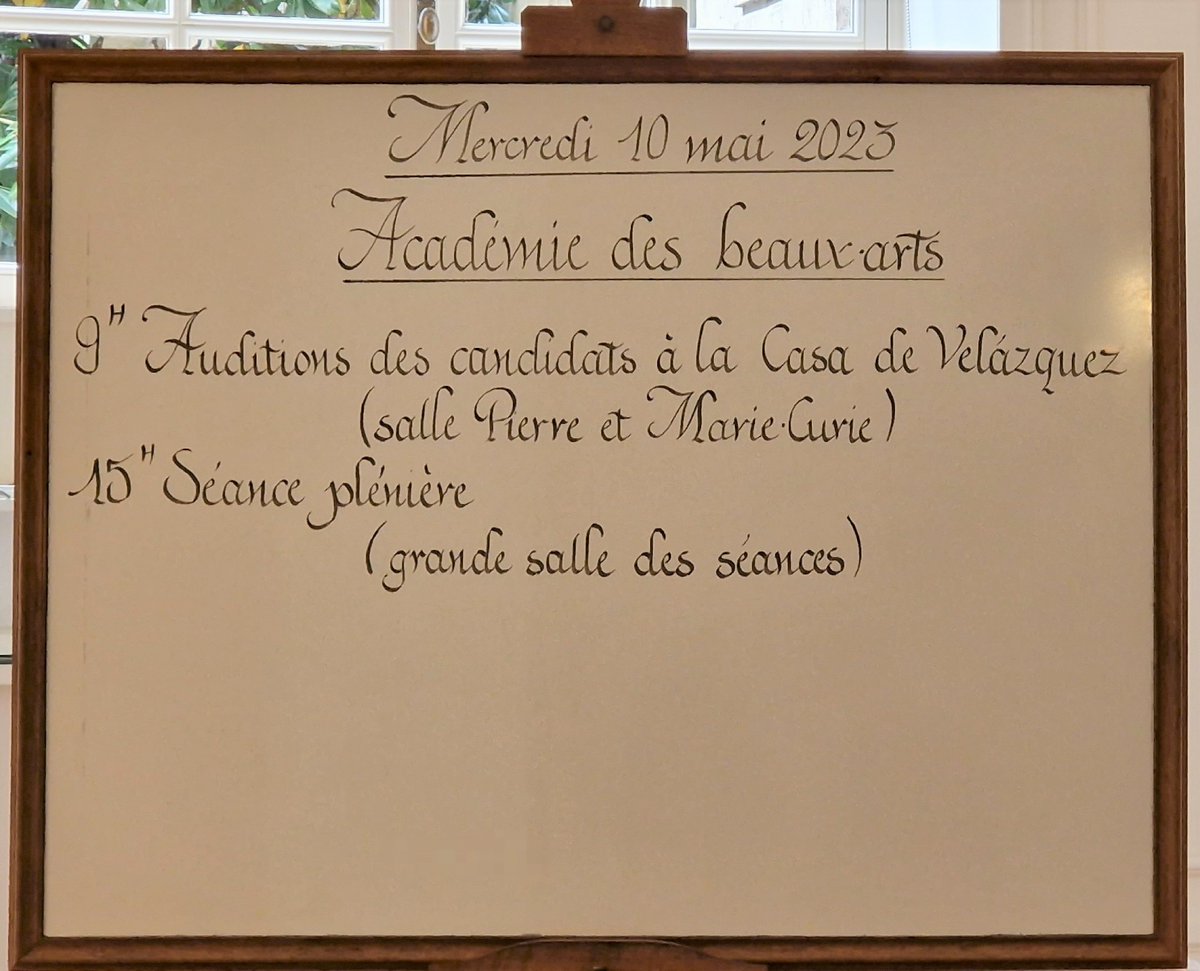 Mercredi 10 mai 2023
Académie des beaux-arts
9H Auditions des candidats à la Casa de Velázquez
(salle Pierre et Marie-Curie)
15H Séance plénière
(grande salle des séances)